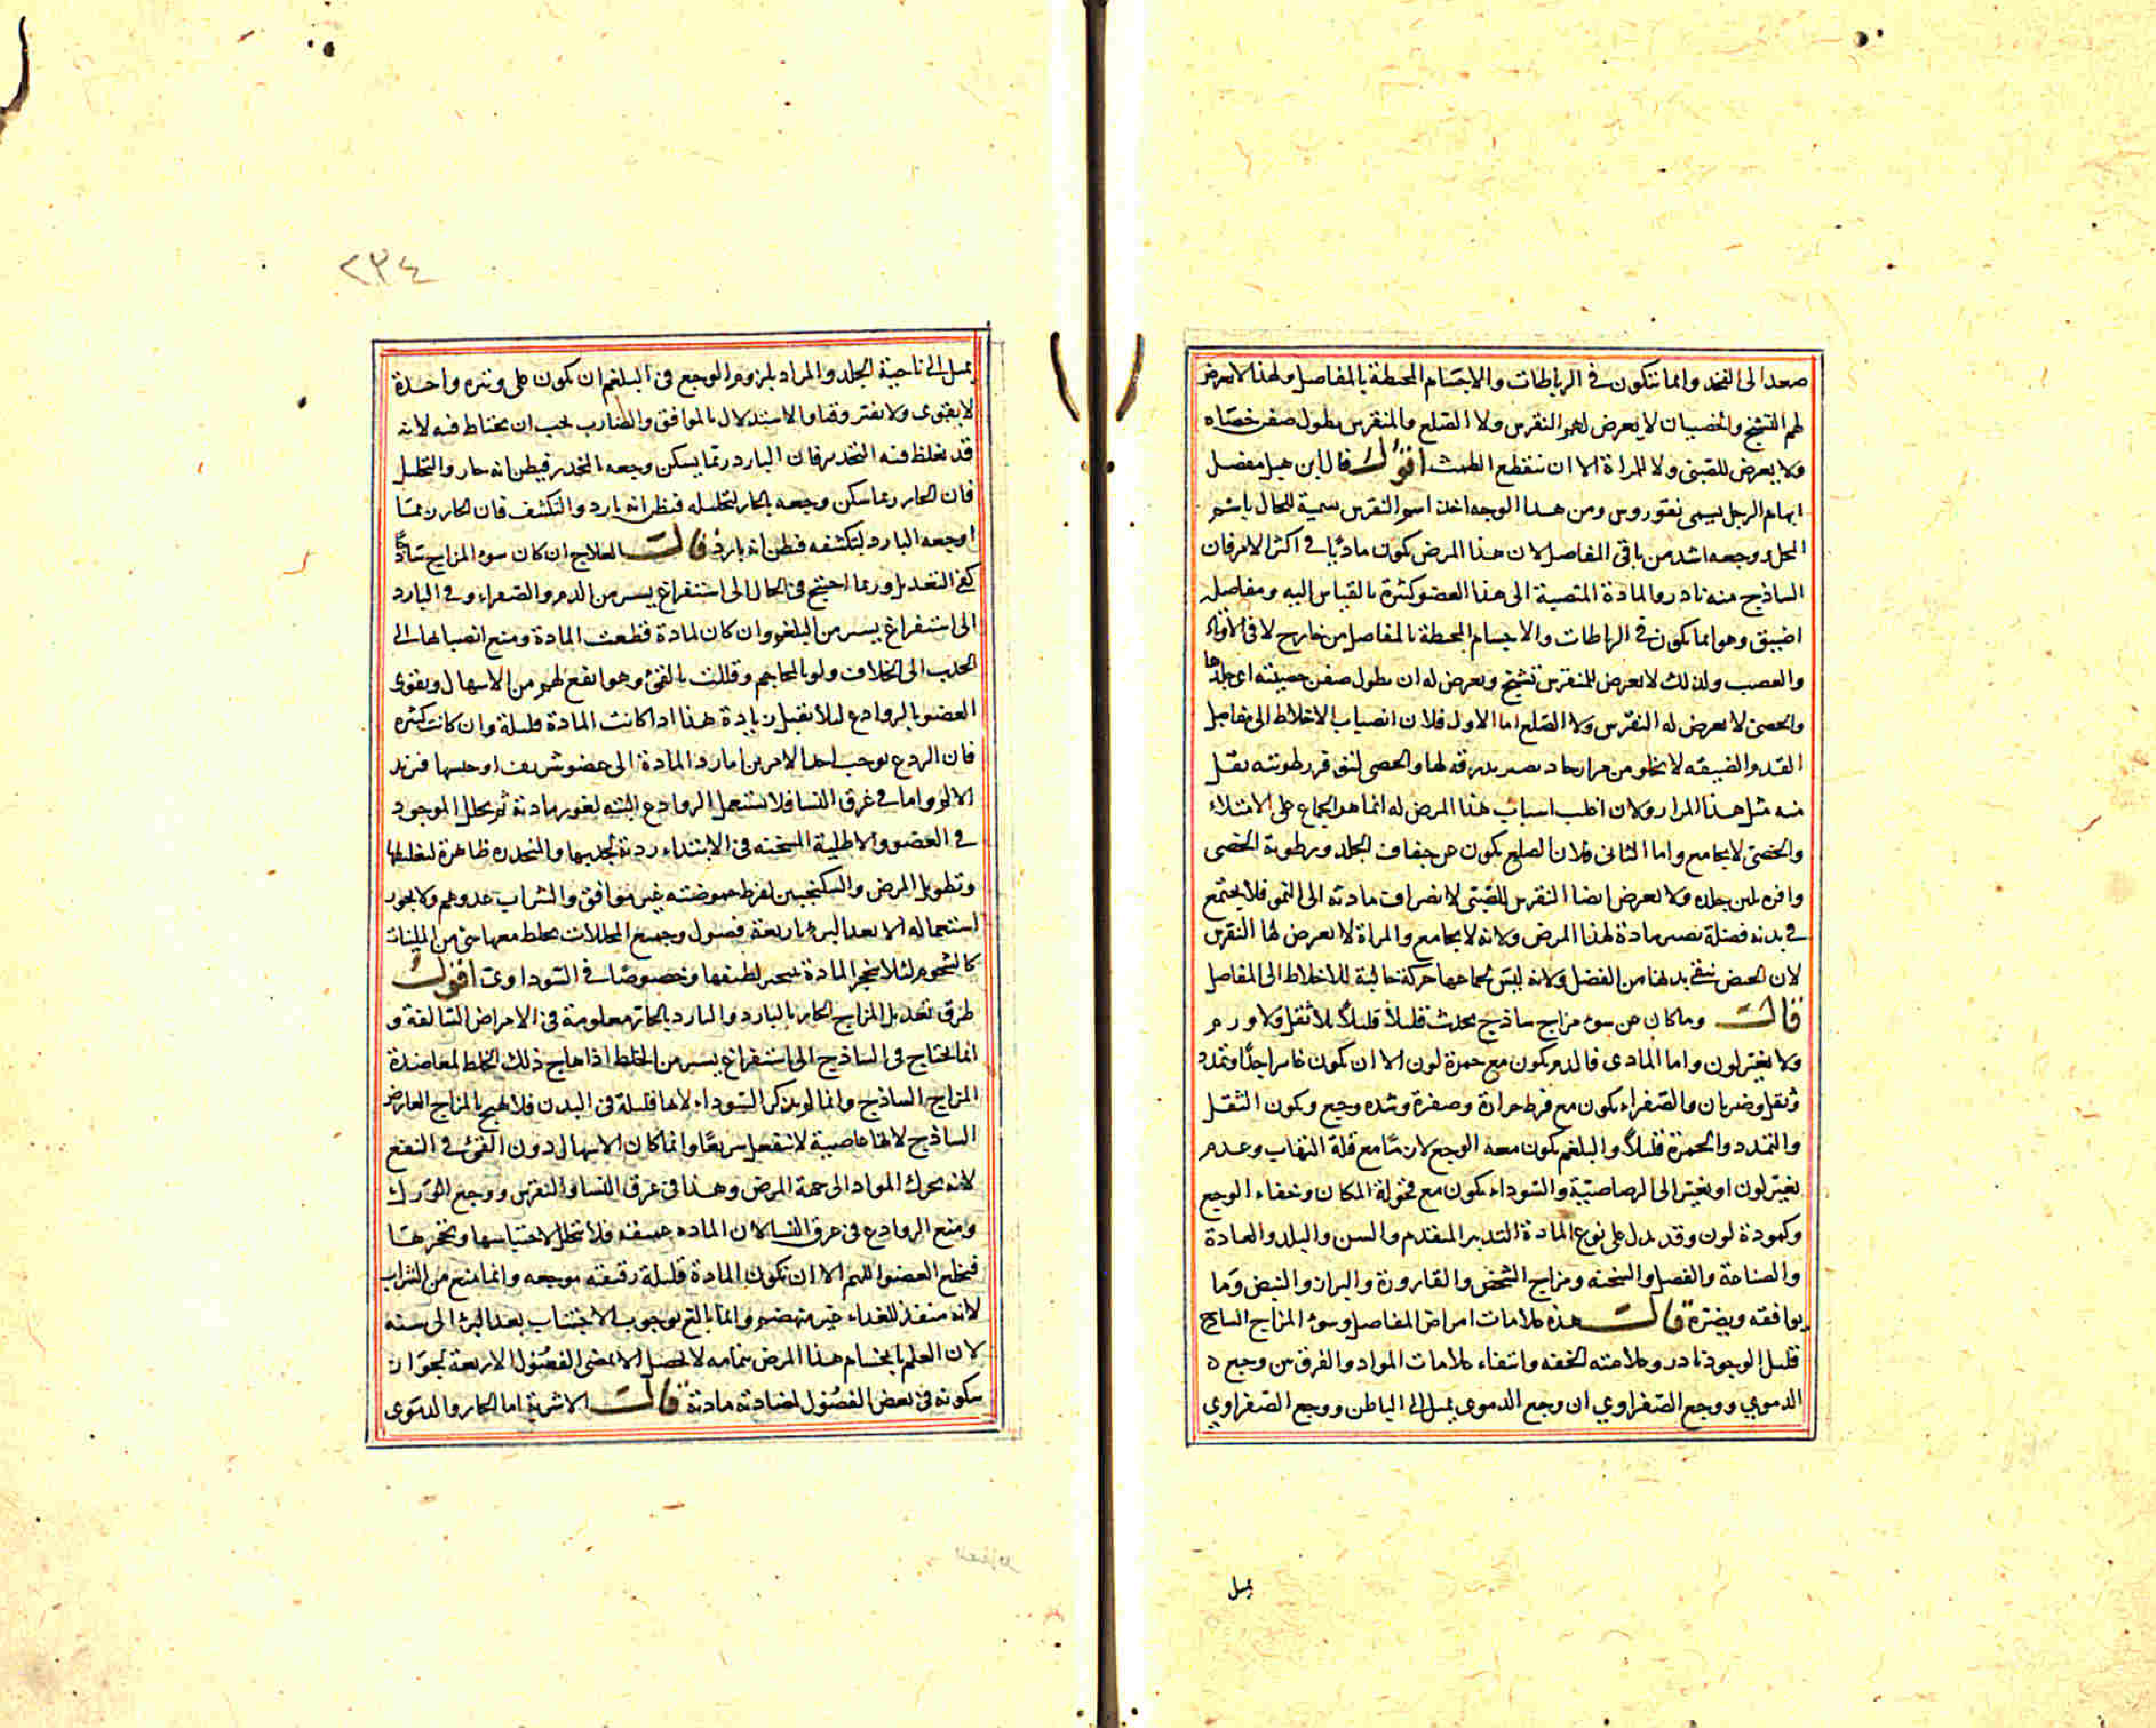 صعد الى الفخذ وانما تتكون في الرباطات والاجسام المحيطة بالمفاصل ولهذا لا يعرض
لهم التشنج والخصيان لا يعرض لهم النقرس ولا الصلع والمنقرس يطول صفن خصاه
ولا يعرض للصبي ولا للمراة الا ان ينقطع الطمث اقول قال ابن هبل مفصل
ابهام الرجل يسمى نقوروس ومن هذا الوجه اخذ اسم النقرس تسمية للحال باسم
المحل ووجعه اشد من باقي المفاصل لان هذا المرض يكون ماديا في اكثر الامر فان
الساذج منه نادر والمادة المنصبة الى هذا العضو كثيرة بالقياس اليه ومفاصله
اضيق وهو انما يكون في الرباطات والاجسام المحيطة بالمفاصل من خارج لا في الاوتار
والعصب ولذلك لا يعرض للمنقرس تشنج ويعرض له ان يطول صفن خصيته اي جلدها
والخصي لا يعرض له النقرس ولا الصلع اما الاول فلان انصباب الاخلاط الى مفاصل
القدم الضيقة لا يخلو من مرار حاد يصير بدرقة لها والخصي لتوفر رطوبته يقل
منه مثل هذا المرار ولان اغلب اسباب هذا المرض له انما هو الجماع على الامتلاء
والخصي لا يجامع واما الثاني فلان الصلع يكون عن جفاف الجلد ورطوبة الخصي
وافرة تلين جلده ولا يعرض ايضا النقرس للصبي لانصراف مادته الى النمو فلا يجتمع
في بدنه فضلة تصير مادة لهذا المرض ولانه لا يجامع والمراة لا يعرض لها النقرس
لان الحيض ينقي بدنها من الفضل ولانه ليس لجماعها حركة جالبة للاخلاط الى المفاصل
قال وما كان عن سوء مزاج ساذج يحدث قليلا قليلا بلا ثقل ولا ورم
ولا تغير لون واما المادي فالدم يكون مع حمرة لون الا ان يكون غائرا جدا وتمدد
وثقل وضربان والصفراء يكون مع فرط حرارة وصفرة وشدة وجع ويكون الثقل
والتمدد والحمرة قليلا والبلغم يكون معه الوجع لازما مع قلة التهاب وعدم
تغير لون او تغير الى الرصاصية والسوداء يكون مع قحولة المكان وخفاء الوجع
وكمودة لون وقد يدل على نوع المادة التدبير المتقدم والسن والبلد والعادة
والصناعة والفصل والسحنة ومزاج الشخص والقارورة والبراز والنبض وما
يوافقه ويضره قال هذه علامات امراض المفاصل وسوء المزاج الساذج
قليل الوجود نادر وعلامته الخفة وانتفاء علامات المواد والفرق بين وجع
الدموي ووجع الصفراوي ان وجع الدموي يميل الى الباطن ووجع الصفراوي
يميل
٢٣٤
يميل الى ناحية الجلد والمراد بلزوم الوجع في البلغم ان يكون على وتيرة واحدة
لا يقوى ولا يفتر وقتا والاستدلال بالموافق والضار يجب ان يحتاط فيه لانه
قد يغلط فيه التخدير فان البارد ربما يسكن وجعه المخدر فيظن انه حار والتحليل
فان الحار ربما سكن وجعه بالحار لتحليله فيظن انه بارد والتكثيف فان الحار ربما
اوجعه البارد لتكثيفه فيظن انه بارد قال العلاج ان كان سوء المزاج ساذجا
كفى التعديل وربما احتيج في الحال الى استفراغ يسير من الدم والصفراء وفي البارد
الى استفراغ يسير من البلغم وان كان لمادة قطعت المادة ومنع انصبابها الى
الجذب الى الخلاف ولو بالمحاجم وقللت بالقيء وهو انفع لهم من الاسهال ويقوى
العضو بالروادع لئلا يقبل زيادة هذا اذا كانت المادة قليلة وان كانت كثيرة
فان الردع يوجب احد الامرين اما رد المادة الى عضو شريف او حبسها فيزيد
الالم واما في عرق النسا فلا تستعمل الروادع البتة لغور مادته ثم يحلل الموجود
في العضو والاطلية المسخنة في الابتداء ردية لجذبها والمخدرة ظاهرة لتغليظها
وتطويل المرض والسكنجبين لفرط حموضته غير موافق والشراب عدو لهم ولا يجوز
استعماله الا بعد البرء باربعة فصول وجميع المحللات يخلط معها شيء من الملينات
كالشحوم لئلا يتحجر المادة بتبخر لطيفها وخصوصا في السوداوي اقول
طرق تعديل المزاج الحار بالبارد والبارد بالحار معلومة في الامراض السالفة و
انما يحتاج في الساذج الى استفراغ يسير من الخلط اذا هاج ذلك الخلط لمعاضدة
المزاج الساذج وانما لم يذكر السوداء لانها قليلة في البدن فلا تهيج بالمزاج العارض
الساذج لانها عاصية لا تنفعل سريعا وانما كان الاسهال دون القيء في النفع
لانه يحرك المواد الى جهة المرض وهذا في عرق النسا والنقرس ووجع الورك
ومنع الروادع في عرق النسا لان المادة عميقة فلا تتحلل لاحتباسها وتحجرها
فيخلع العضو اللهم الا ان تكون المادة قليلة رقيقة موجعة وانما منع من الشراب
لانه منفذ للغذاء غير منهضم وانما بالغ بوجوب الاجتناب بعد البرء الى سنة
لان العلم بانحسام هذا المرض بتمامه لا يحصل الا بمضي الفصول الاربعة لجواز
سكونه في بعض الفصول لمضادته مادته قال الاشربة اما الحار والدموي